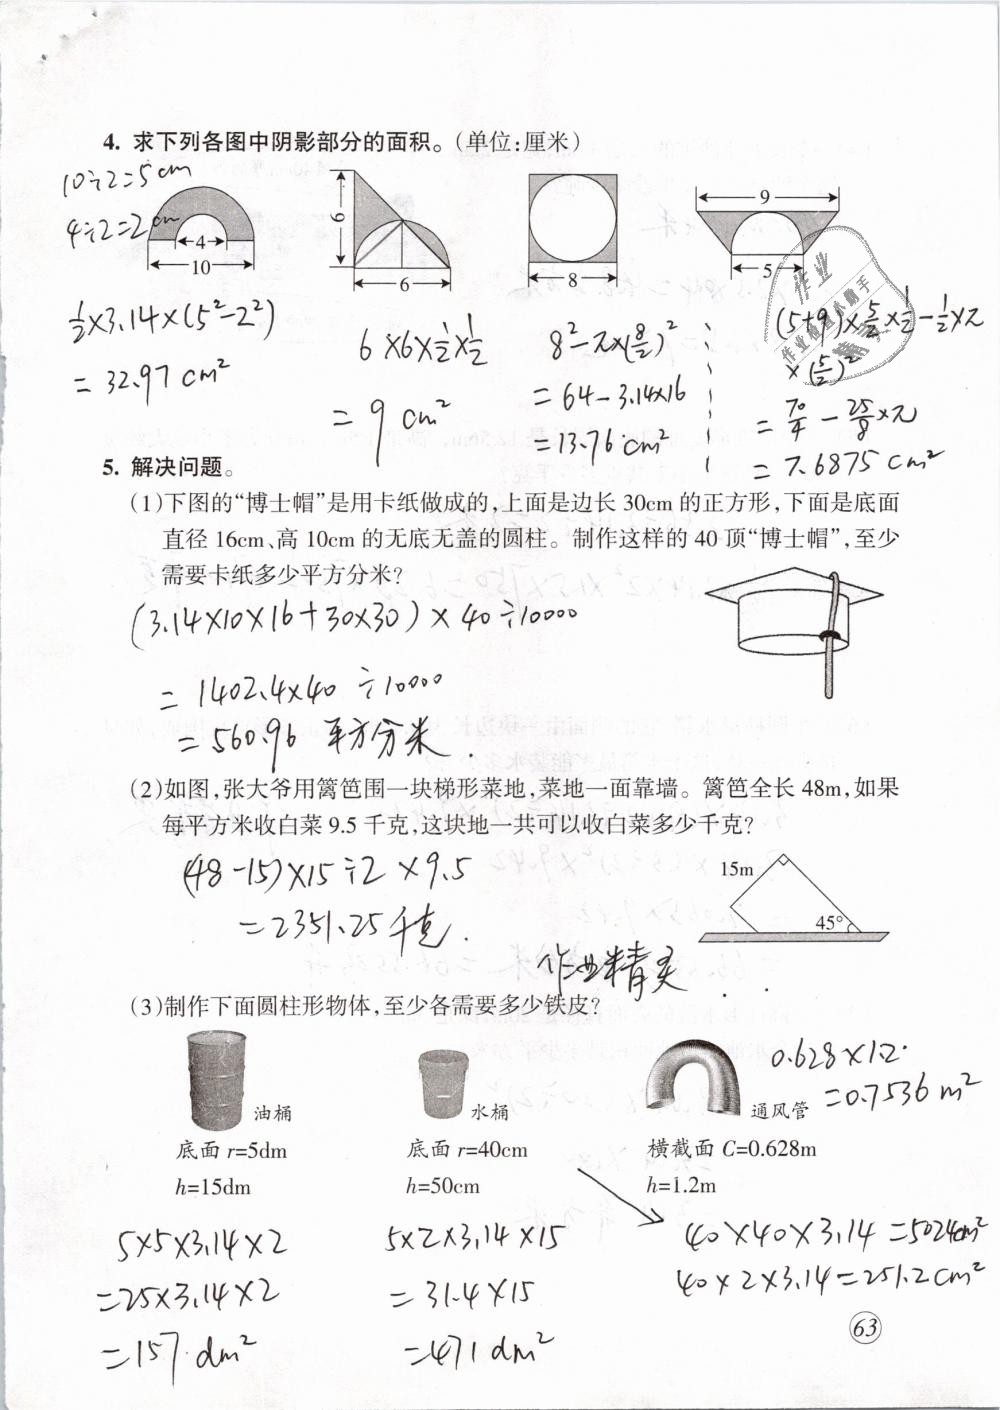 4. 求下列各图中阴影部分的面积。(单位:厘米)
10÷2=5cm
4÷2=2cm
4
10
6
6
8
9
5
½×3.14×(5²-2²)
= 32.97 cm²
6×6×½×½
= 9 cm²
8²-π×(8/2)²
= 64-3.14×16
=13.76 cm²
(5+9)×5/2×½-½×π
×(5/2)²
= 70/4 - 25/8×π
= 7.6875 cm²
作业
作业精灵
5. 解决问题。
(1)下图的“博士帽”是用卡纸做成的,上面是边长 30cm 的正方形,下面是底面
直径 16cm、高 10cm 的无底无盖的圆柱。制作这样的 40 顶“博士帽”,至少
需要卡纸多少平方分米?
(3.14×10×16+30×30)×40÷10000
= 1402.4×40 ÷10000
=560.96 平方分米.
(2)如图,张大爷用篱笆围一块梯形菜地,菜地一面靠墙。篱笆全长 48m,如果
每平方米收白菜 9.5 千克,这块地一共可以收白菜多少千克?
(48-15)×15÷2×9.5
=2351.25千克.
15m
45°
作业精灵
(3)制作下面圆柱形物体,至少各需要多少铁皮?
油桶
底面 r=5dm
h=15dm
水桶
底面 r=40cm
h=50cm
通风管
横截面 C=0.628m
h=1.2m
0.628×1.2
=0.7536m²
5×5×3.14×2
=25×3.14×2
=157 dm²
5×2×3.14×15
= 31.4×15
=471 dm²
40×40×3.14=5024cm²
40×2×3.14=251.2cm²
63